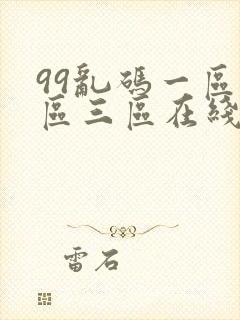 99亂碼一區
區三區在綫
雷石